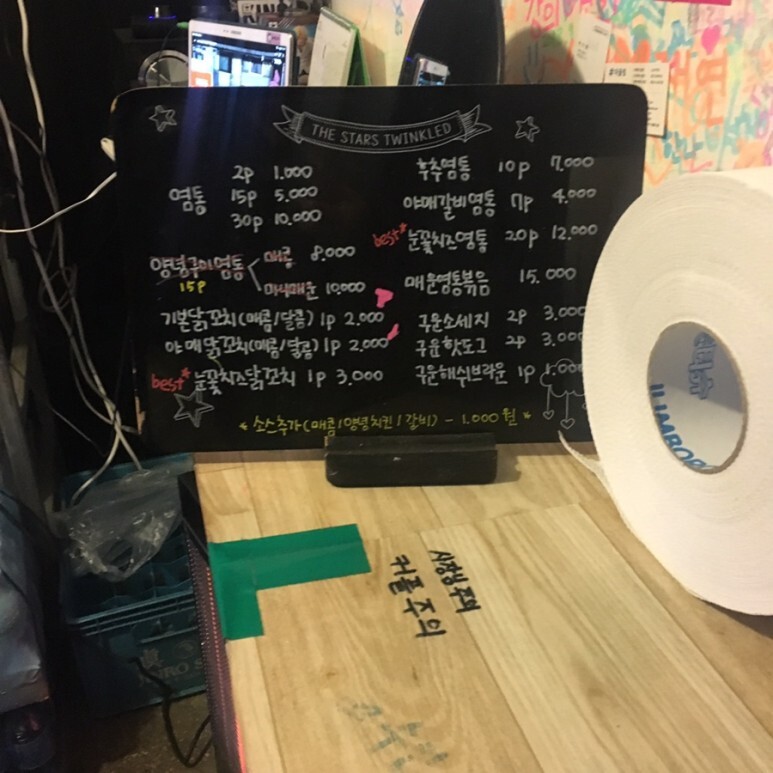 THE STARS TWINKLED
염통
2p 1.000
15p 5.000
30p 10.000
양념구이염통
15P
매콤 8.000
아식매운 10.000
기본닭꼬치(매콤/달콤) 1p 2.000
야매닭꼬치(매콤/달콤) 1p 2.000
best* 눈꽃치즈닭꼬치 1p 3.000
후추염통 10p 7.000
야매갈비염통 7p 4.000
best* 눈꽃치즈염통 20p 12.000
매운염통볶음 15.000
구운소세지 2p 3.000
구운핫도그 2p 3.000
구운해쉬브라운 1p 1.000
* 소스추가(매콤/양념치킨/갈비) - 1.000원 *
커플주의